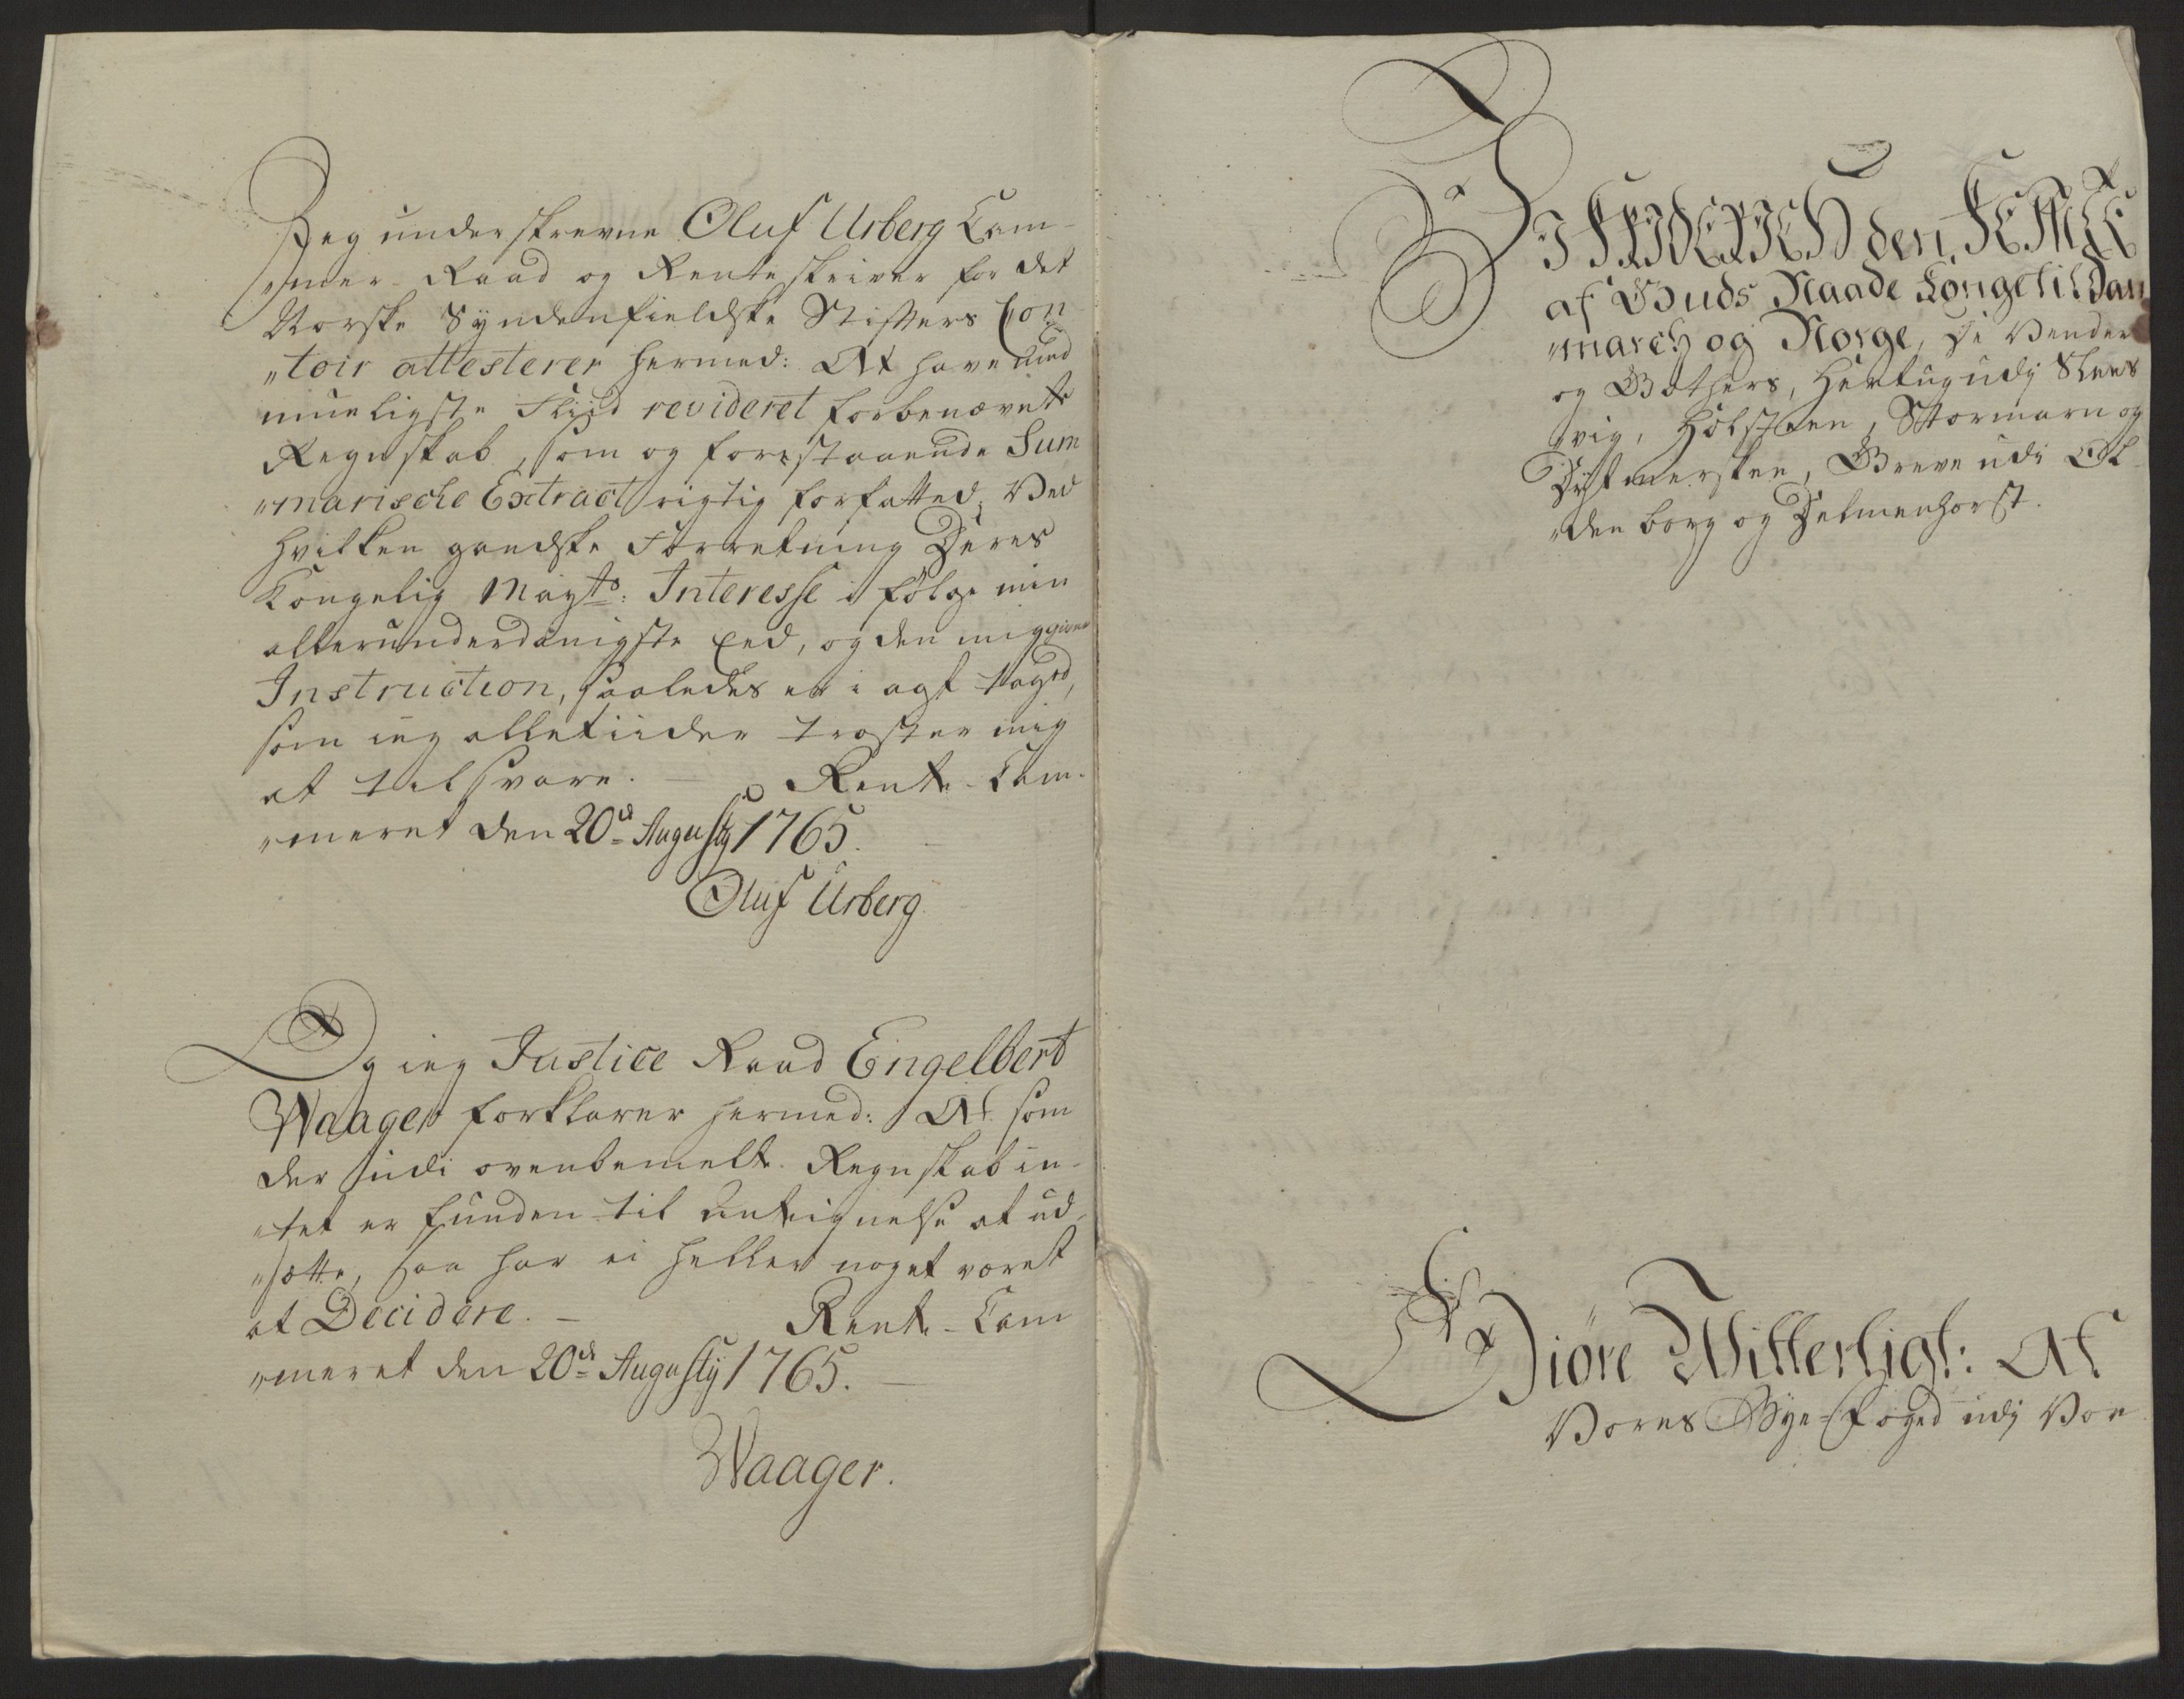 Jeg underskrevne Oluf Urberg Cam-
„mer-Raad og Renteskriver for det
Norske Syndenfieldske Stifters Con
„toir attesterer hermed: At have med
mueligste Fliid revideret forbenævnte
Regnskab, som og forestaaende Sum
„marische Extract rigtig forfatted; Ved
hvilken gandske Forretning Deres
Kongelig Mayts: Interesse i følge min
allerunderdanigste Eed, og den mig givne
Instruction, saaledes er i agt taget,
som ieg alletiider trøster mig
at tilsvare. — Rente-Cam-
„meret den 20d Augustj 1765.
Oluf Urberg
Og ieg Justice Raad Engelbert
Waager forklarer hermed: At som
der udi ovenbemelte Regnskab in-
„tet er funden til Antegnelse at ud-
„sætte, saa har ei heller noget været
at Decidere. — Rente-Cam
„meret den 20d Augustij 1765. —
Waager.
Vi FRIDERICH den FEMTE
af Guds Naade Konge til Dan
„march og Norge, De Venders
og Gothers, Hertug udj Slees
„vig, Holsteen, Stormarn og
Dytmersken, Greve udi Ol-
„denborg og Delmenhorst.
Giöre Witterligt: At
Vores Bye-Foged udj Vor